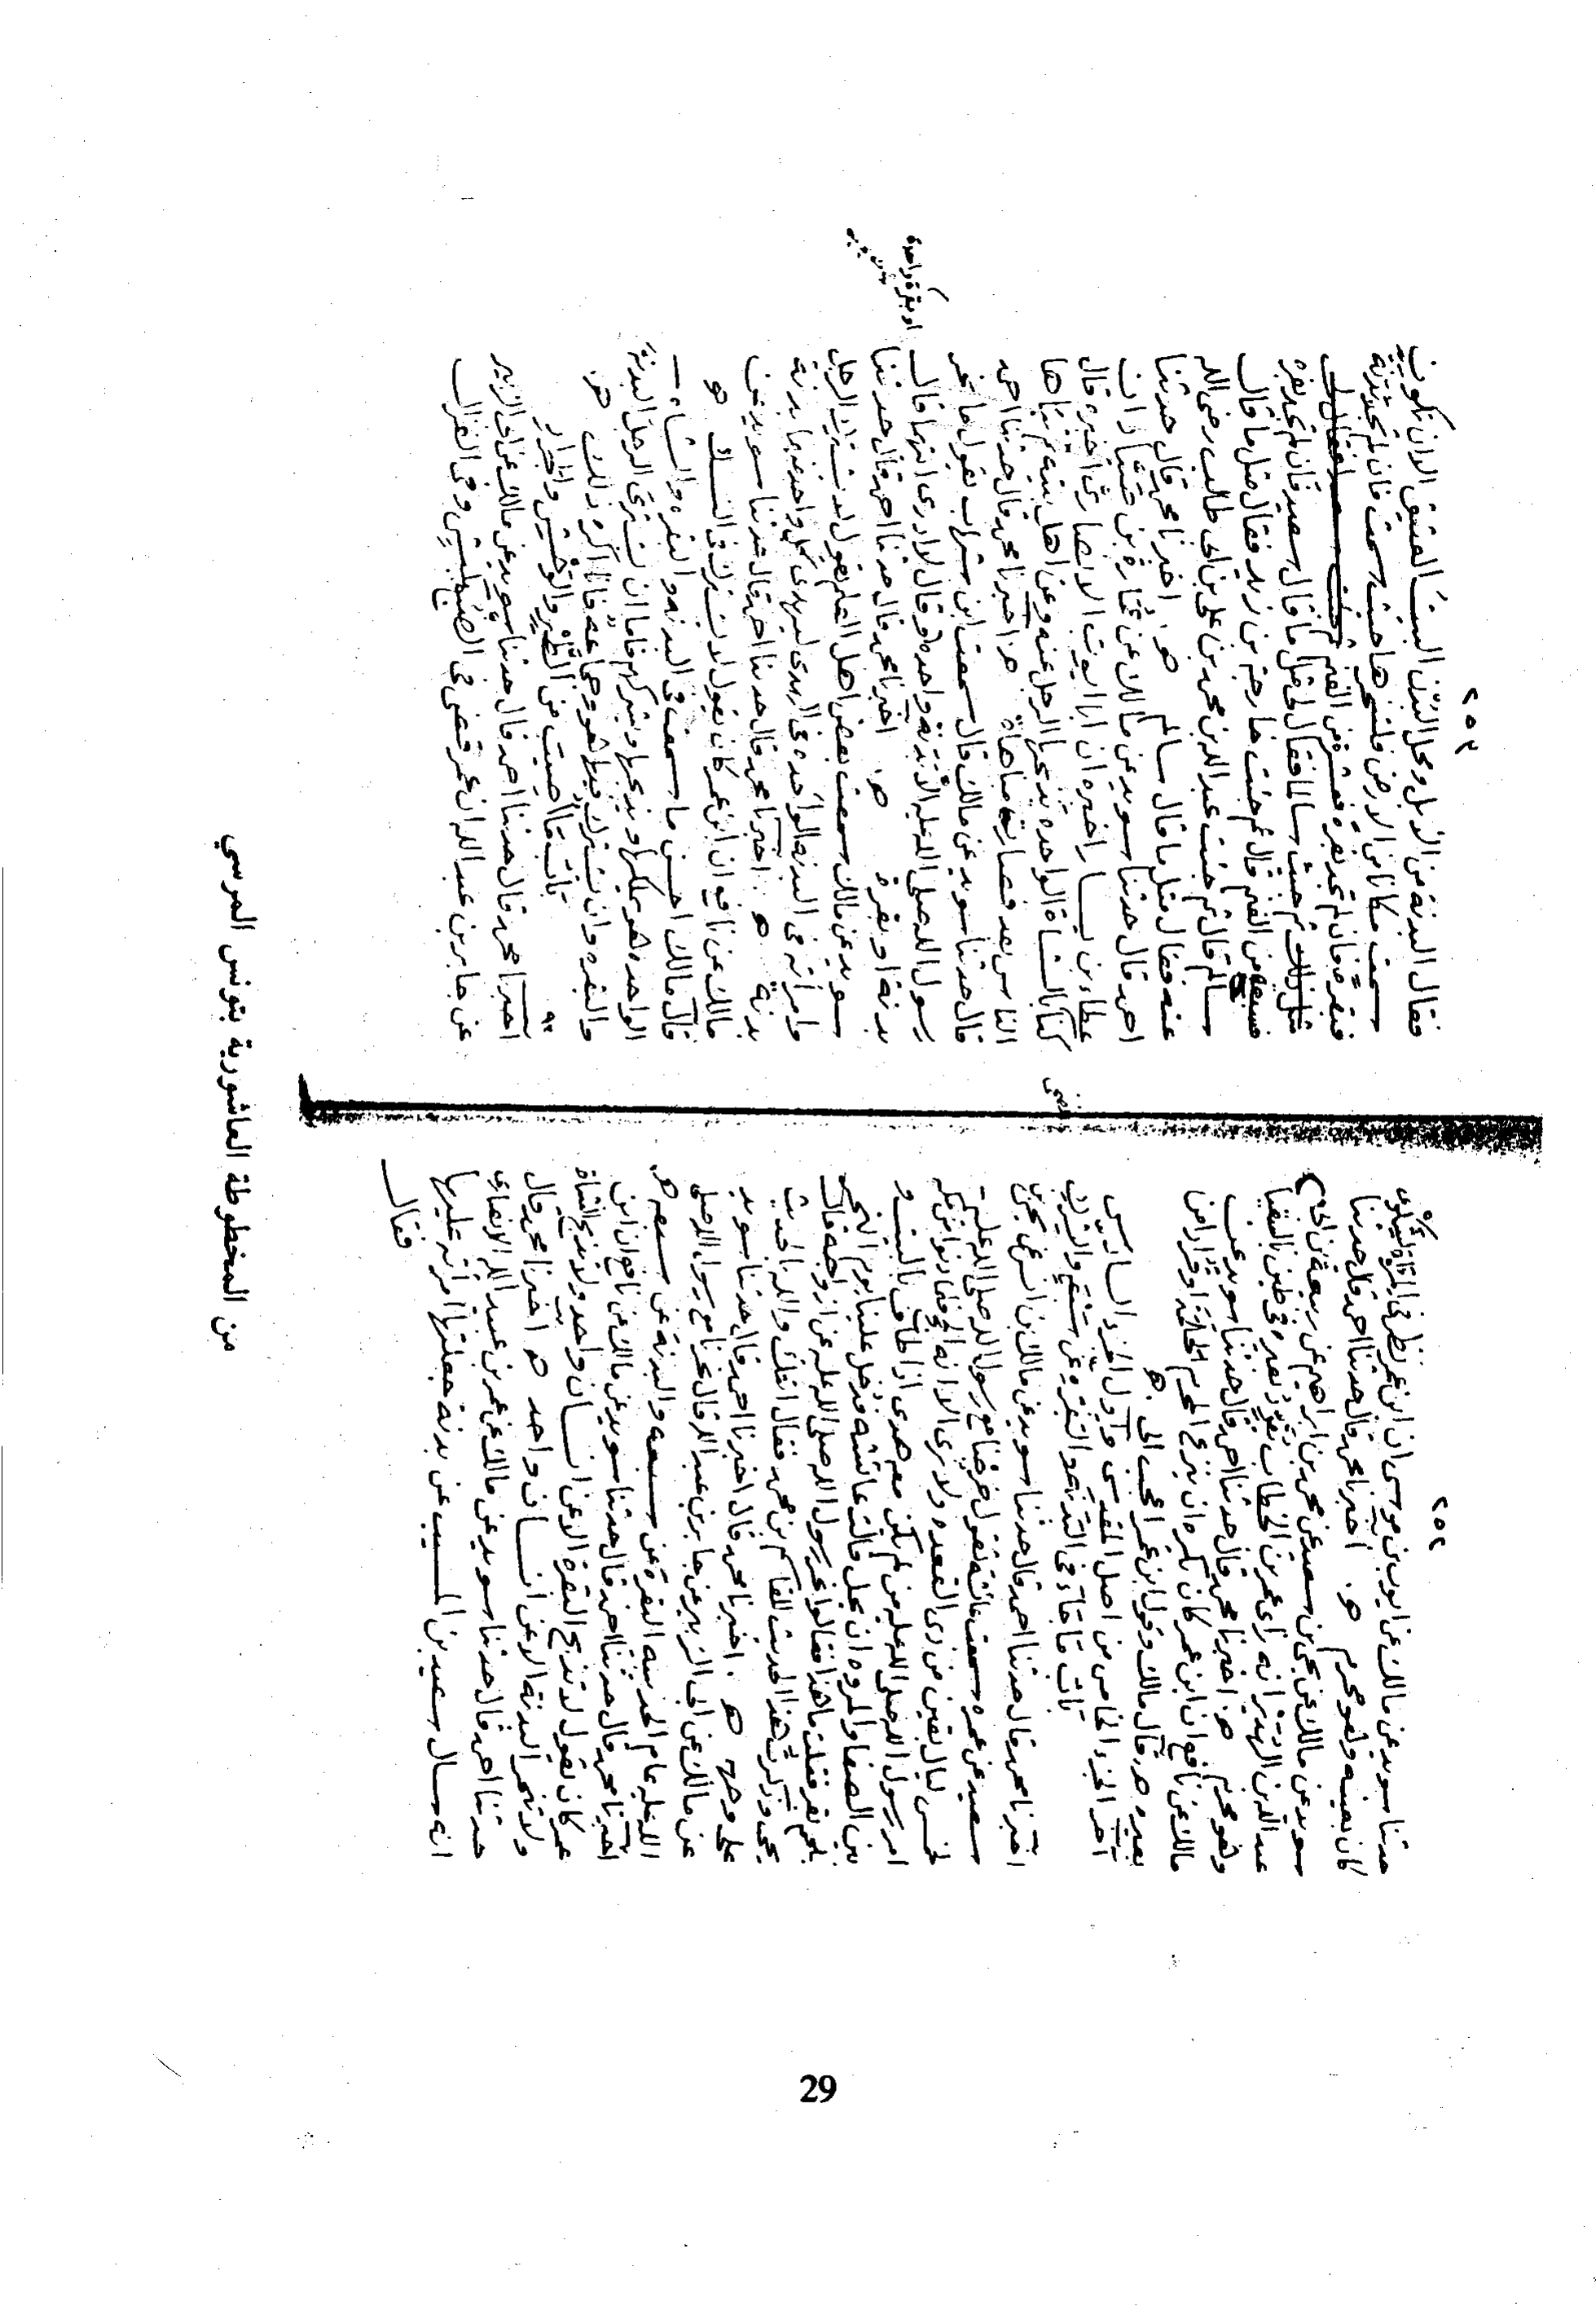 ٢٥٢
حدثنا سويد عن مالك عن ايوب بن موسى ان ابن عمر نظر في المرآة لشكوى
كان بعينيه وهو محرم اخبرنا محمد قال حدثنا احمد قال حدثنا
سويد عن مالك عن يحيى بن سعيد عن محمد بن ابراهيم عن ربيعة بن ابي
عبد الله بن الهدير انه رأى عمر بن الخطاب يقرد بعيره في طين بالسقيا
وهو محرم اخبرنا محمد قال حدثنا احمد قال حدثنا سويد عن
مالك عن نافع ان ابن عمر كان يكره ان ينزع المحرم الحلمة او قرادا من
بعيره قال مالك وقول ابن عمر اعجب الي
آخر الجزء الخامس من اصل المقدسي واول الجزء السادس
باب ما جاء في البدنة والبقرة عن سبعة والشرك
اخبرنا محمد قال حدثنا احمد قال حدثنا سويد عن مالك بن انس عن يحيى بن
سعيد عن عمرة سمعت عائشة تقول خرجنا مع رسول الله صلى الله عليه
لخمس ليال بقين من ذي القعدة ولا نرى الا انه الحج فلما دنونا من مكة
امر رسول الله صلى الله عليه من لم يكن معه هدي اذا طاف بالبيت و
بين الصفا والمروة ان يحل قالت عائشة فدخل علينا يوم النحر
بلحم بقر فقلت ما هذا فقالوا نحر رسول الله صلى الله عليه عن ازواجه قال
يحيى فذكرت هذا الحديث للقاسم بن محمد فقال اتتك والله بالحديث
على وجهه اخبرنا محمد قال اخبرنا احمد قال حدثنا سويد
عن مالك عن ابي الزبير عن جابر بن عبد الله قال نحرنا مع رسول الله صلى
الله عليه عام الحديبية البقرة عن سبعة والبدنة عن سبعة
اخبرنا محمد قال حدثنا احمد قال حدثنا سويد عن مالك عن نافع ان ابن
عمر كان يقول لا تذبح البقرة الا عن انسان واحد ولا تذبح الشاة
ولا تنحر البدنة الا عن انسان واحد اخبرنا محمد قال
حدثنا احمد قال حدثنا سويد عن مالك عن عمر بن عبيد الله الانصاري
انه سال سعيد بن المسيب عن بدنة جعلتها امراته عليها
فقال
٢٥٣
فقال البدنة من الابل ومحل البدن البيت العتيق الا ان تكون
سمت مكانا من الارض فلتنحرها حيث سمت فان لم تجد بدنة
فبقرة فان لم تجد بقرة فعشر من الغنم
مثل ذلك ثم جئت سالما فقال لي مثل ما قال سعيد فان لم تجد بقرة
فسبع من الغنم قال ثم جئت خارجة بن زيد فقال مثل ما قال
سالم قال ثم جئت عبد الله بن محمد بن علي بن ابي طالب رضي الله
عنه فقال مثل ما قال سالم اخبرنا محمد قال حدثنا
احمد قال حدثنا سويد عن مالك عن عمارة بن صياد ان
عطاء بن يسار اخبره ان ابا ايوب الانصاري اخبره قال
كنا نضحي بالشاة الواحدة يذبحها الرجل عنه وعن اهل بيته ثم تباها
الناس بعد فصارت مباهاة اخبرنا محمد قال حدثنا احمد
قال حدثنا سويد عن مالك قال سمعت ابن شهاب يقول ما نحر
رسول الله صلى الله عليه الا بدنة واحدة او بقرة واحدة وقال لا ادري ايتهما قال
بدنة او بقرة اخبرنا محمد قال حدثنا احمد قال حدثنا
سويد عن مالك سمعت بعض اهل العلم يقول لا يشترك الرجل
وامراته في البدنة الواحدة في الهدي ليهدي كل واحد منهما بدنة
بدنة اخبرنا محمد قال حدثنا احمد قال حدثنا سويد عن
مالك عن نافع ان ابن عمر كان يقول لا يشترك في النسك
قال مالك احسن ما سمعت في البدنة والبقرة والشاة
الواحدة هو يملكها ويذبحها ويشركهم فاما ان يشتري الرجل البدنة
والبقرة وان يشترك فيها هو وجماعة فانا اكره ذلك
باب ما اصيب من الطير والوحش والجراد
اخبرنا محمد قال حدثنا احمد قال حدثنا سويد عن مالك عن ابي الزبير
عن جابر بن عبد الله ان عمر قضى في الضبع بكبش وفي الغزال
من المخطوطة العاشورية بتونس المرسي
29